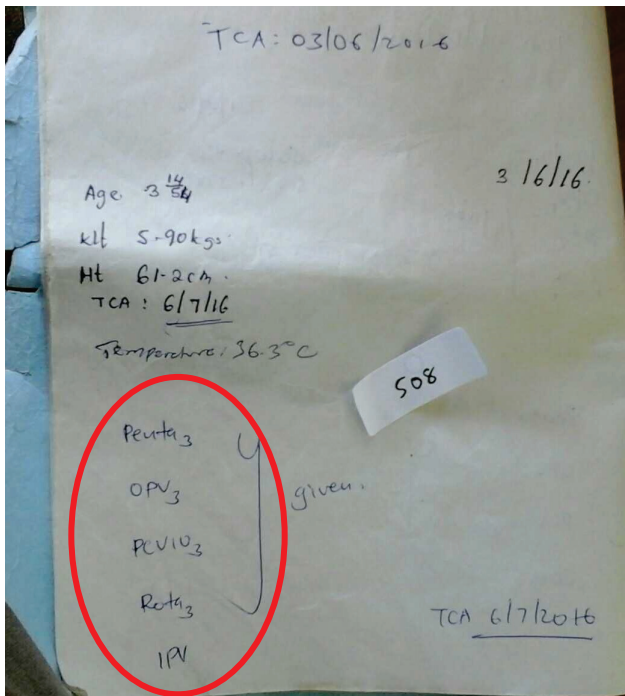 TCA: 03/06/2016
3/6/16.
Age 3 14/54
Wt 5.90kgs.
Ht 61.2cm.
TCA: 6/7/16
Temperature: 36.3°C
508
Penta3
OPV3
PCV103
Rota3
given.
IPV
TCA 6/7/2016